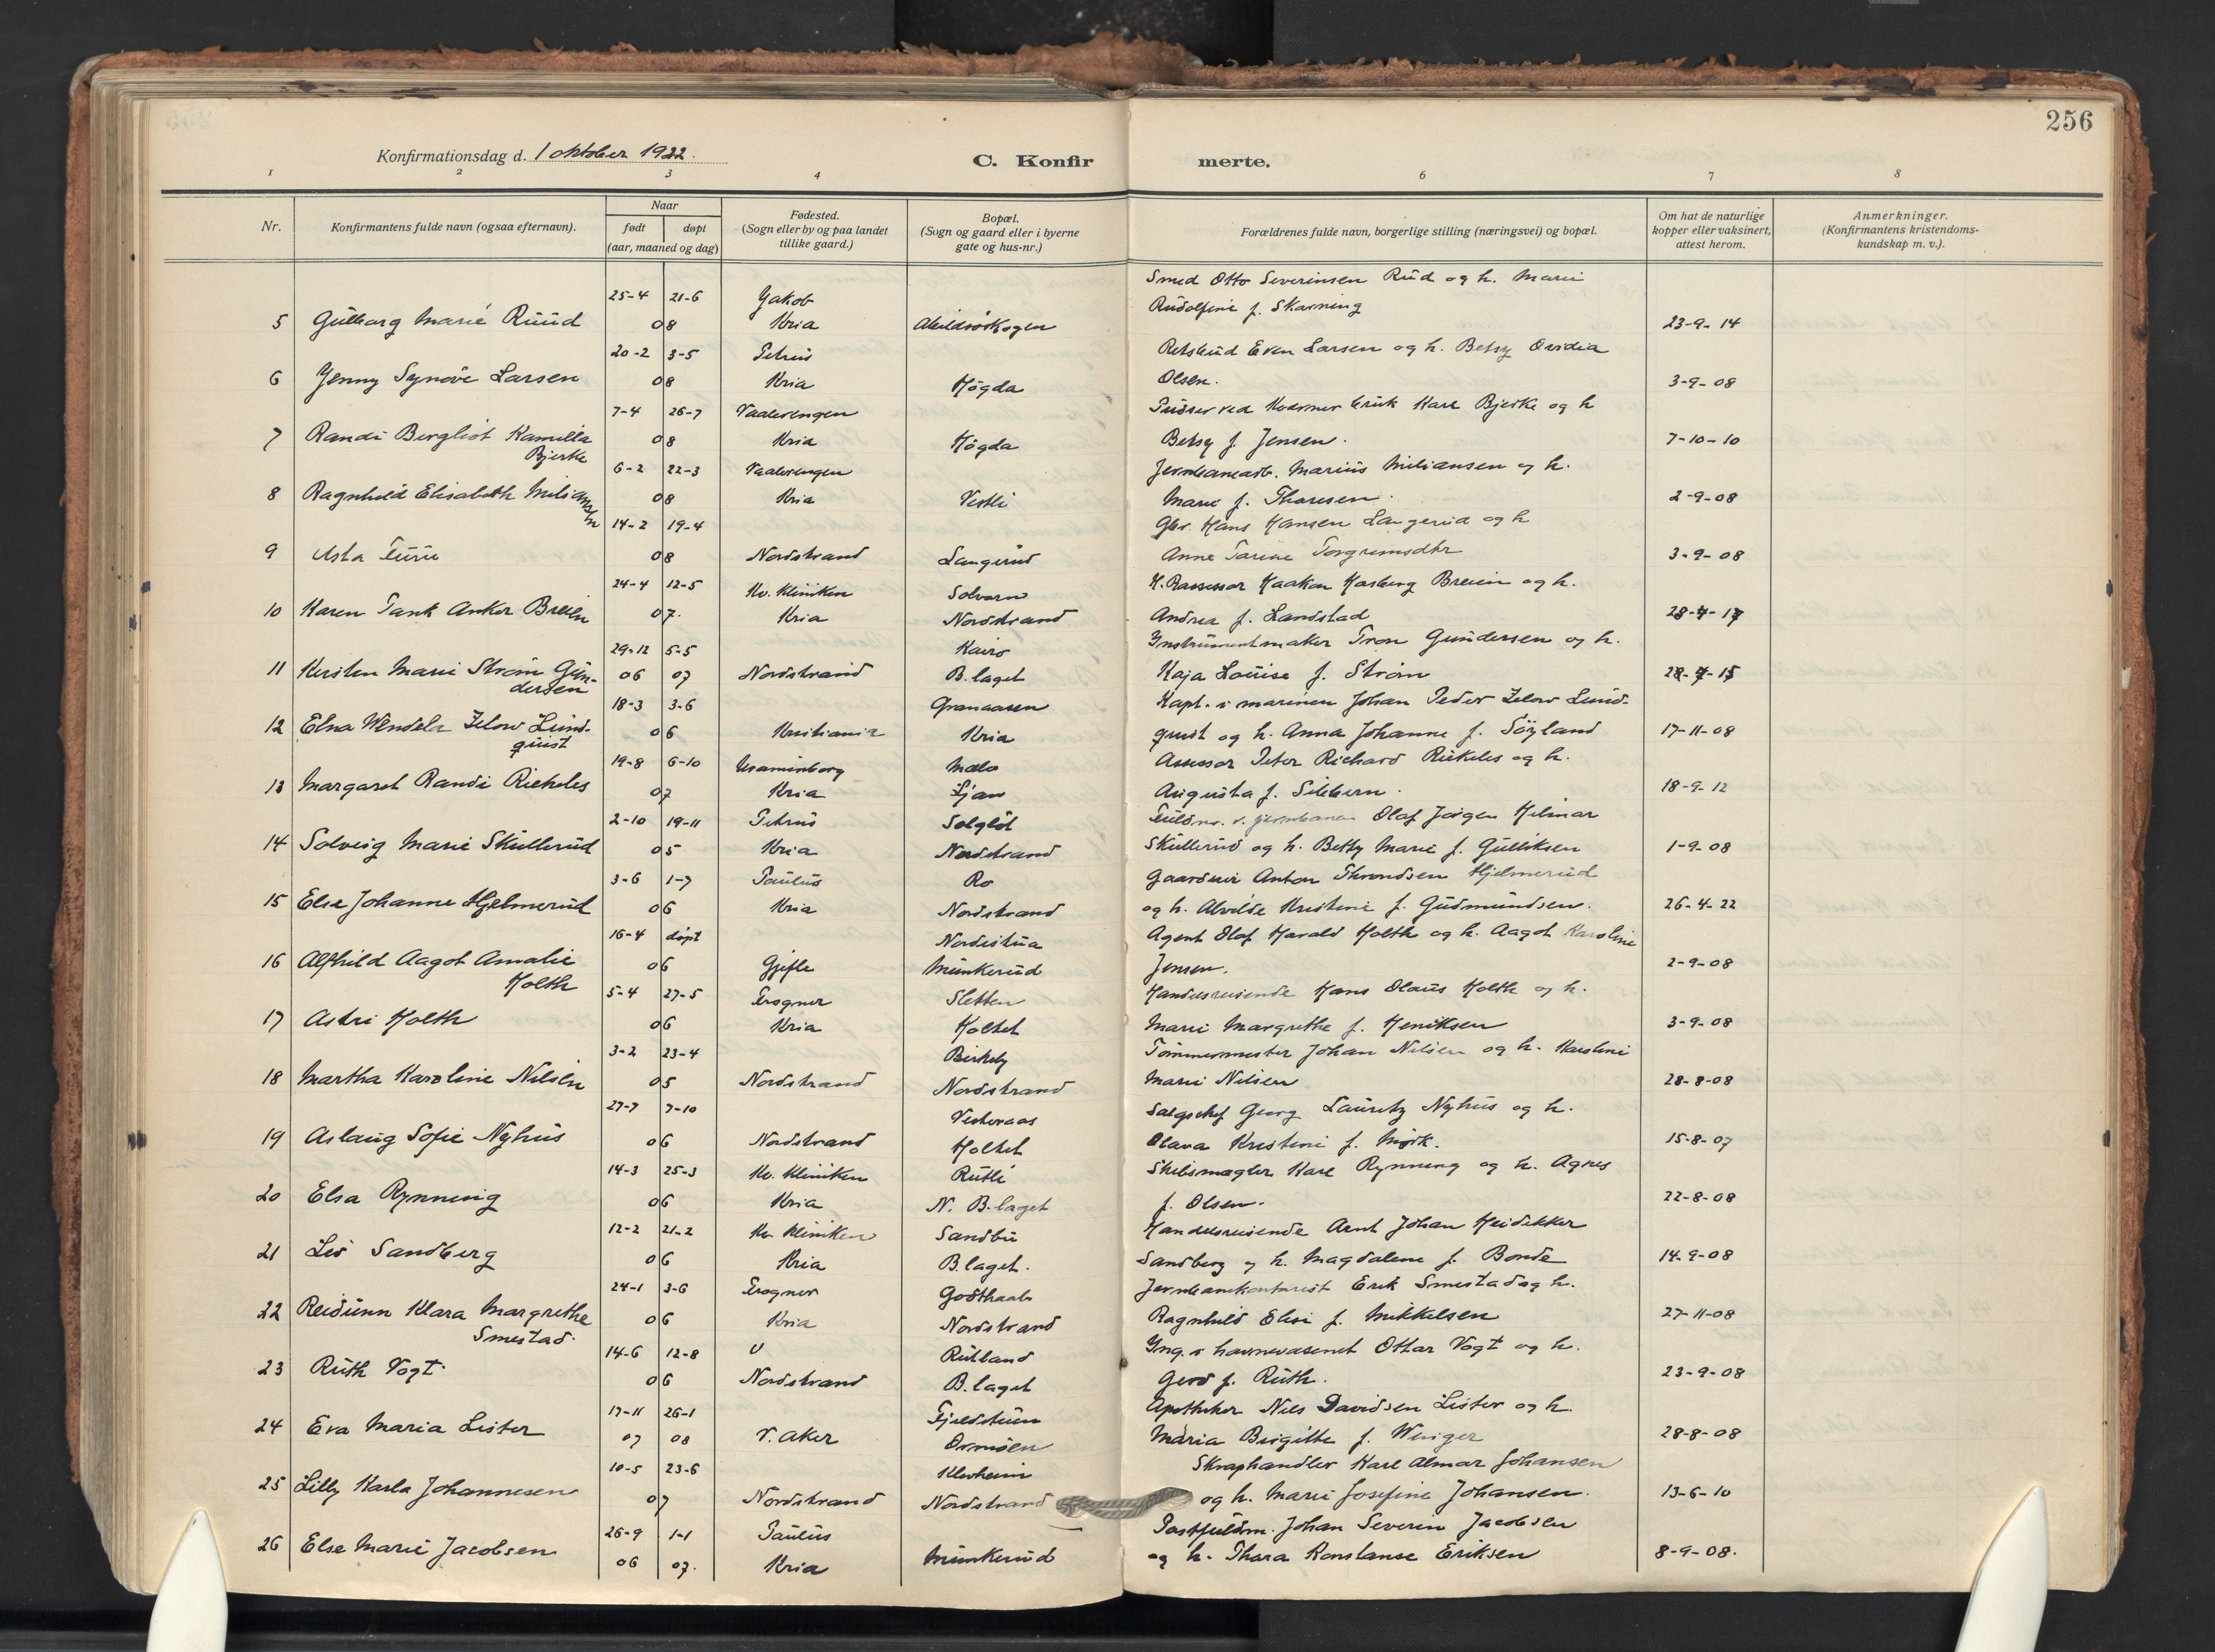 256
Konfirmationsdag d. 1 oktober 1922.
C. Konfir merte.
1 2 3 4 6 7 8
Nr.
Konfirmantens fulde navn (ogsaa efternavn).
Naar
født døpt
(aar, maaned og dag)
Fødested.
(Sogn eller by og paa landet
tillike gaard.)
Bopæl.
(Sogn og gaard eller i byerne
gate og hus-nr.)
Forældrenes fulde navn, borgerlige stilling (næringsvei) og bopæl.
Om hat de naturlige
kopper eller vaksinert,
attest herom.
Anmerkninger.
(Konfirmantens kristendoms-
kundskap m. v.).
Smed Otto Severinsen Rud og h. Marie
25-4 21-6 Jakob Rudolfine f. Skarning
5 Gulborg Marie Ruud 08 Kria 23-9-14
20-2 3-5 Petrus Retsbud Even Larsen og h. Betsy Ovidia
6 Jenny Synøve Larsen 08 Kria Høgda Olsen. 3-9-08
7-4 26-7 Vaalerengen Pudser ved Kværner bruk Karl Bjerke og h
7 Randi Bergliot Kamilla 08 Kria Høgda Betsy f. Jensen. 7-10-10
Bjerke
6-2 22-3 Vaalerengen Jernbanearb. Marius Miliansen og h.
8 Ragnhild Elisabeth Miliansen 08 Kria Vestli Marie f. Thoresen. 2-9-08
14-2 19-4 Gbr. Hans Hansen Langerud og h
9 Asta Furu 08 Nordstrand Langerud Anne Tarine Torgrimsdtr 3-9-08
24-4 12-5 Kv. kliniken Solvorn H. Rassessor Haakon Hasberg Breien og h.
10 Karen Tank Anker Breien 07. Kria Nordstrand Andrea f. Landstad
29-12 5-5 Kairo Instrumentmaker Tron Gundersen og h.
11 Kirsten Marie Strøm Gun- 06 07 Nordstrand B.laget Kaja Louise f. Strøm
dersen
18-3 3-6 Granaasen Kapt. i marinen Johan Peder Zelow Lund-
12 Elna Wendela Zelow Lund- 06 Kristiania Kria quist og h. Anna Johanne f. Söyland 17-11-08
quist
19-8 6-10 Uranienborg Mælo Assessor Peter Richard Rieheles og h.
13 Margaret Randi Rieheles 07 Kria Ljan Augusta f. Sibbern. 18-9-12
2-10 19-11 Petrus Solglöt Fuldm. v. jernbanen Olaf Jørgen Hilmar
14 Solveig Marie Skullerud 05 Kria Nordstrand Skullerud og h. Betty Marie f. Gulliksen 1-9-08
3-6 1-7 Paulus Ro Gaardeier Anton Throndsen Hjelmerud
15 Else Johanne Hjelmerud 06 Kria Nordstrand og h. Alvilde Kristine f. Gudmundsen. 26-4-22
16-4 døpt Nordistua Agent Olaf Harald Holth og h. Aagot Karoline
16 Alfhild Aagot Amalie 06 Gjefle Munkerud Jensen. 2-9-08
Holth
5-4 27-5 Frogner Sletten Handelsreisende Hans Olaus Holth og h.
17 Astri Holth 06 Kria Holtet Marie Margrethe f. Henriksen 3-9-08
3-2 23-4 Birkeby Tømmermester Johan Nilsen og h. Karoline
18 Martha Karoline Nilsen 05 Nordstrand Nordstrand Marie Nilsen 28-8-08
27-7 7-10 Vesteraas Salgschef Georg Lauretz Nyhus og h.
19 Aslaug Sofie Nyhus 06 Nordstrand Holtet Olava Kristine f. Mørk. 15-8-07
14-3 25-3 Kv. kliniken Rutli Skibsmægler Karl Rynning og h. Agnes
20 Elsa Rynning 06 Kria N. B.laget f. Olsen. 22-8-08
12-2 21-2 Kv kliniken Sandbu Handelsreisende Arnt Johan Heidekker
21 Liv Sandberg 06 Kria B.laget. Sandberg og h. Magdalene f. Bonde 14-9-08
24-1 3-6 Frogner Godthaab Jernbanekontorist Erik Smestad og h.
22 Reidunn Klara Margrethe 06 Kria Nordstrand Ragnhild Elise f. Mikkelsen 27-11-08
Smestad.
14-6 12-8 Rutland Ing. i havnevæsenet Ottar Vogt og h.
23 Ruth Vogt 06 Nordstrand B.laget Gerd f. Ruth. 23-9-08
17-11 26-1 Fjeldstuen Apotheker Nils Davidsen Lister og h.
24 Eva Maria Lister 07 08 V. Aker Ormøen Maria Birgitte f. Winger 28-8-08
10-5 23-6 Skraphandler Karl Almar Johansen
25 Lilly Karla Johannesen 07 Nordstrand Nordstrand og h. Marie Josefine Johansen. 13-6-10
26-9 1-1 Paulus Postfuldm. Johan Severin Jacobsen
26 Else Marie Jacobsen 06 07. Kria Munkerud og h. Thora Konstanse Eriksen 8-9-08.